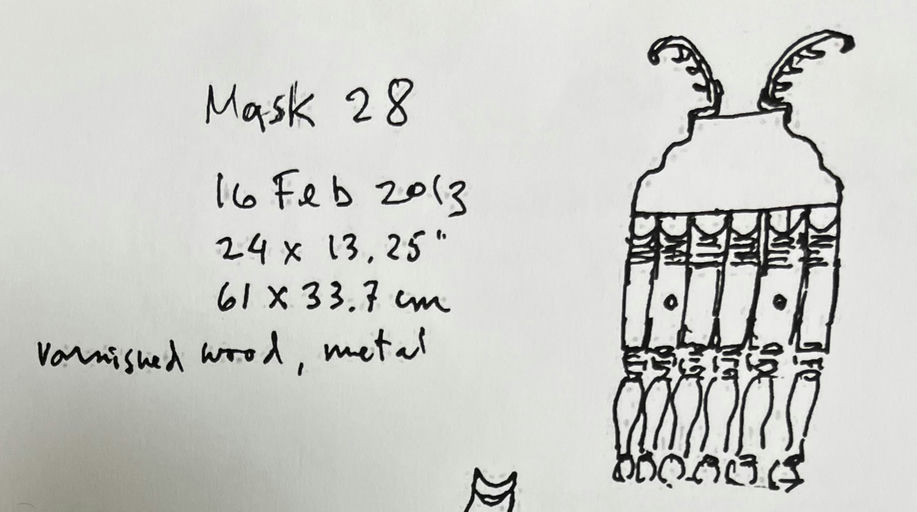 Mask 28
16 Feb 2013
24 x 13.25"
61 x 33.7 cm
varnished wood, metal